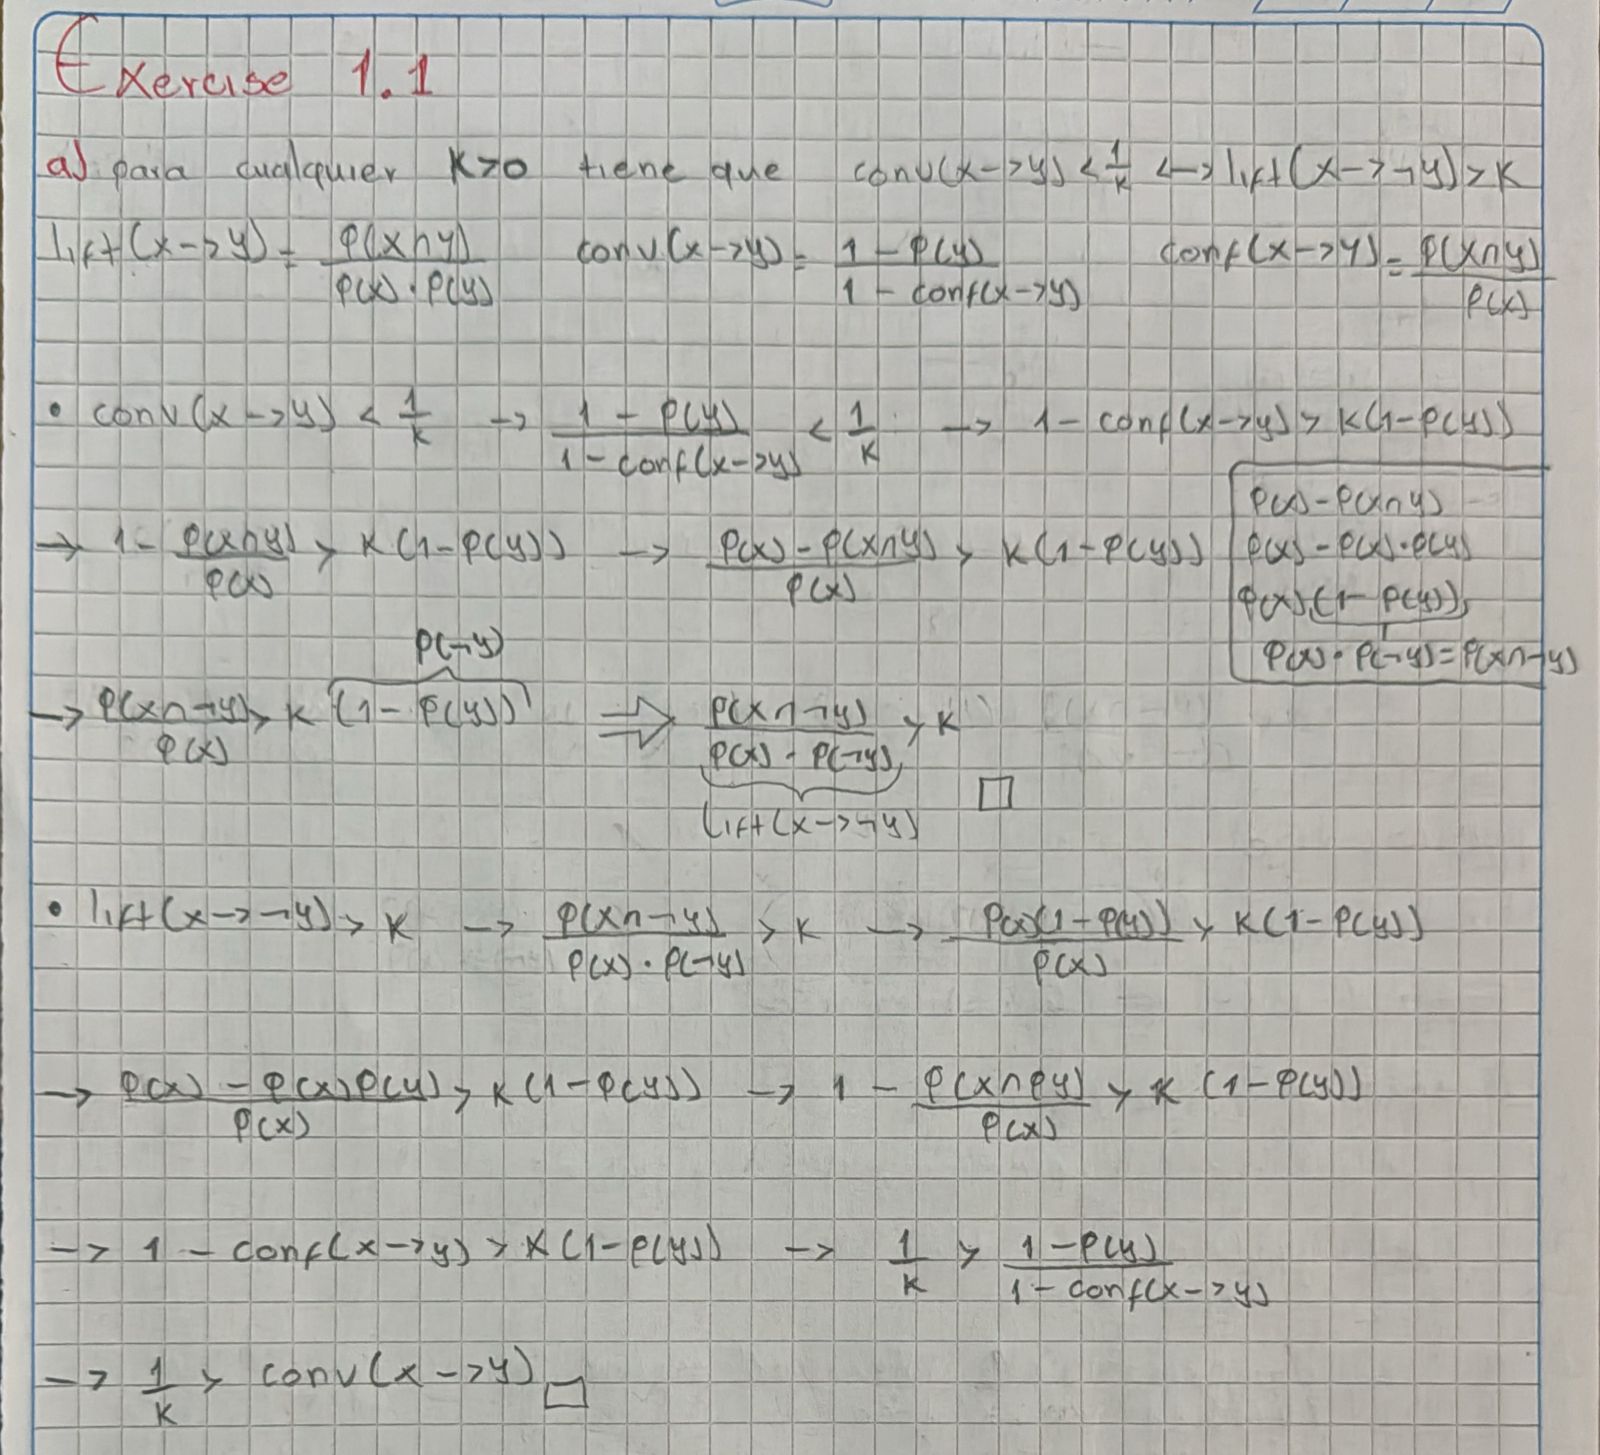 Exercise 1.1
a) para cualquier K>0 tiene que conv(x->y) < 1/K <-> lift(x->¬y) > K
lift(x->y) = P(x∩y) / P(x)·P(y) conv(x->y) = 1-P(y) / 1-conf(x->y) conf(x->y) = P(x∩y) / P(x)
• conv(x->y) < 1/K -> 1-P(y) / 1-conf(x->y) < 1/K -> 1-conf(x->y) > K(1-P(y))
-> 1- P(x∩y) / P(x) > K(1-P(y)) -> P(x)-P(x∩y) / P(x) > K(1-P(y))
P(x)-P(x∩y)
P(x)-P(x)·P(y)
P(x)(1-P(y))
P(x)·P(¬y)=P(x∩¬y)
P(¬y)
-> P(x∩¬y) / P(x) > K (1-P(y)) => P(x∩¬y) / P(x)·P(¬y) > K
lift(x->¬y) □
• lift(x->¬y) > K -> P(x∩¬y) / P(x)·P(¬y) > K -> P(x)(1-P(y)) / P(x) > K(1-P(y))
-> P(x)-P(x)P(y) / P(x) > K(1-P(y)) -> 1- P(x∩py) / P(x) > K (1-P(y))
-> 1-conf(x->y) > K(1-P(y)) -> 1/K > 1-P(y) / 1-conf(x->y)
-> 1/K > conv(x->y) □